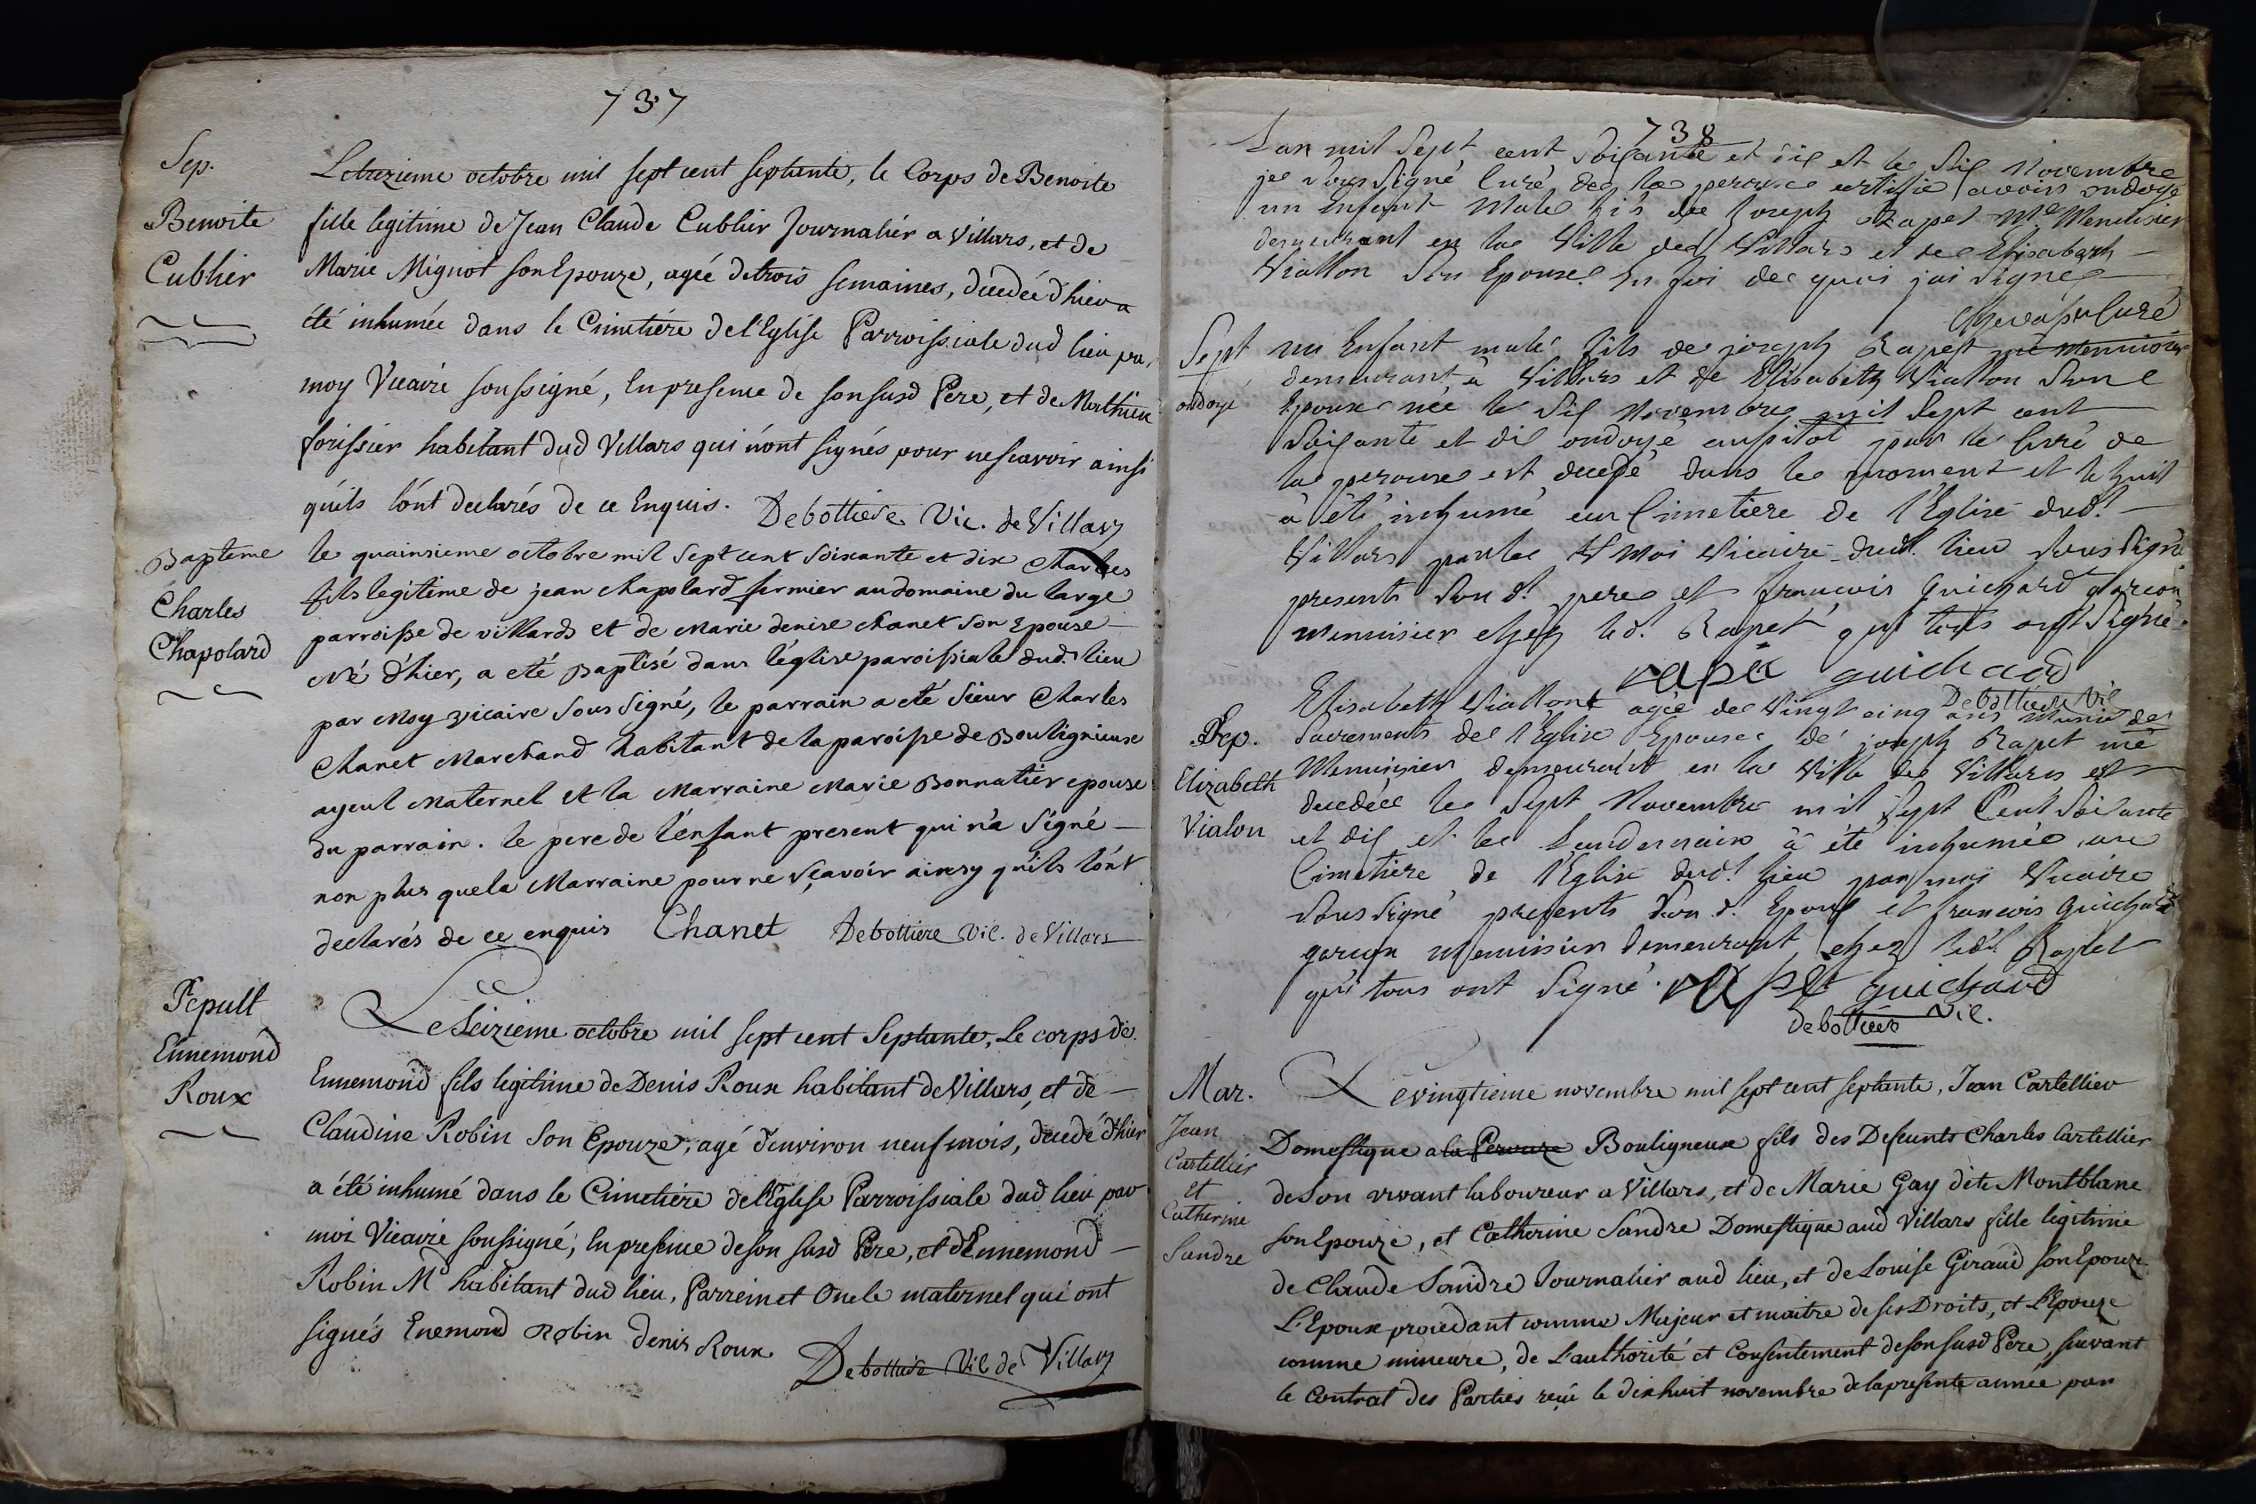 737
Sep.
Benoite
Cublier
Le treizieme octobre mil sept cent septante, le Corps de Benoite
fille legitime de Jean Claude Cublier Journalier a Villars, et de
Marie Mignot son Epouze, agée de trois semaines, decedée d'hier a
été inhumée dans le Cimetiére de l'Eglise Parroissiale dud lieu par
moy Vicaire soussigné, En presence de son susd Pere, et de Mathieu
forissier habitant dud Villars qui n'ont signés pour ne scavoir ainsi
qu'ils l'ont declarés de ce Enquis. Debottiere Vic. de Villars
Bapteme
Charles
Chapolard
le quainsieme octobre mil sept cent soixante et dix Charles
fils legitime de jean chapolard fermier au domaine du large
parroisse de villards et de marie denise chanet son Epouse
Né d'hier, a eté Baptisé dans l'église paroissiale dud. lieu
par Moy vicaire sous signé, le parrain a eté sieur Charles
Chanet Marchand habitant de la paroisse de Bouligneuse
ayeul Maternel et la Marraine Marie Bonnatier epouse
du parrain. le pere de l'enfant present qui n'a signé
non plus que la Marraine pour ne sçavoir ainsy qu'ils l'ont
declarés de ce enquis Chanet Debottiere Vic. de Villars
Sepult
Ennemond
Roux
Le Seizieme octobre mil sept cent Septante, Le corps de
Ennemond fils legitime de Denis Roux habitant de Villars, et de
Claudine Robin son Epouze, agé d'environ neuf mois, decedé d'hier
a été inhumé dans le Cimetiére de l'Eglise Parroissiale dud lieu par
moi Vicaire soussigné, En presence de son susd Pere, et d'Ennemond
Robin Md habitant dud lieu, Parrein et Oncle maternel qui ont
signés Enemond Robin denis Roux
Debottiere Vic de Villars
738
L'an mil sept cent soixante et dix et le six Novembre
je sous signé Curé de la perouse certifie avoir ondoyé
un Enfant Male fis de Joseph Rapet Me Menuisier
demeurant en la Ville de Villars et de Elisabeth
Viallon son Epouse. En foi de quoi jai signé
Curé
Sept
ondoyé
un Enfant male fils de joseph Rapet me menuisier
demeurant à Villars et de Elisabeth Viallon son
Epouse née le six Novembre mil sept cent
soixante et dix ondoyé aussitot par le Curé de
la perouse est decedé dans le moment et le huit
à été inhumé au Cimetiere de l'Eglise dud.
Villars par moi Vicaire dud. lieu sous signé
presents son d. pere et francois Guichard garcon
menuisier chez led. Rapet qui tous ont signé.
rapet guichard
Debottiere Vic
Sep.
Elizabeth
Vialon
Elisabeth Viallon agée de Vingt cinq ans munie des
Sacrements de l'Eglise Epouse de joseph Rapet me
Menuisier demeurant en la Ville de Villars est
decedée le sept Novembre mil sept Cent soixante
et dix et le Lendemain à été inhumée au
Cimetiere de l'Eglise dud. lieu par moi Vicaire
sous signé presents son d. Epoux et francois Guichard
garcon menuisier demeurant chez led. Rapet
qui tous ont signé. rapet guichard
debottiere Vic.
Mar.
Jean
Cartellier
et
Catherine
Sandre
Le vingtieme novembre mil sept cent septante, Jean Cartellier
Domestique a la Perouze Bouligneux fils des Defunts Charles Cartellier
de son vivant laboureur a Villars, et de Marie Gay dite Montblanc
son Epouze, et Catherine Sandre Domestique aud Villars fille legitime
de Claude Sandre Journalier aud lieu, et de Louise Giraud son Epouze
L'Epoux procedant comme Majeur et maitre de ses Droits, et L'Epouze
comme mineure, de L'authorité et Consentement de son susd Pere, suivant
le Contrat des Parties reçu le dixhuit novembre de la presente année par